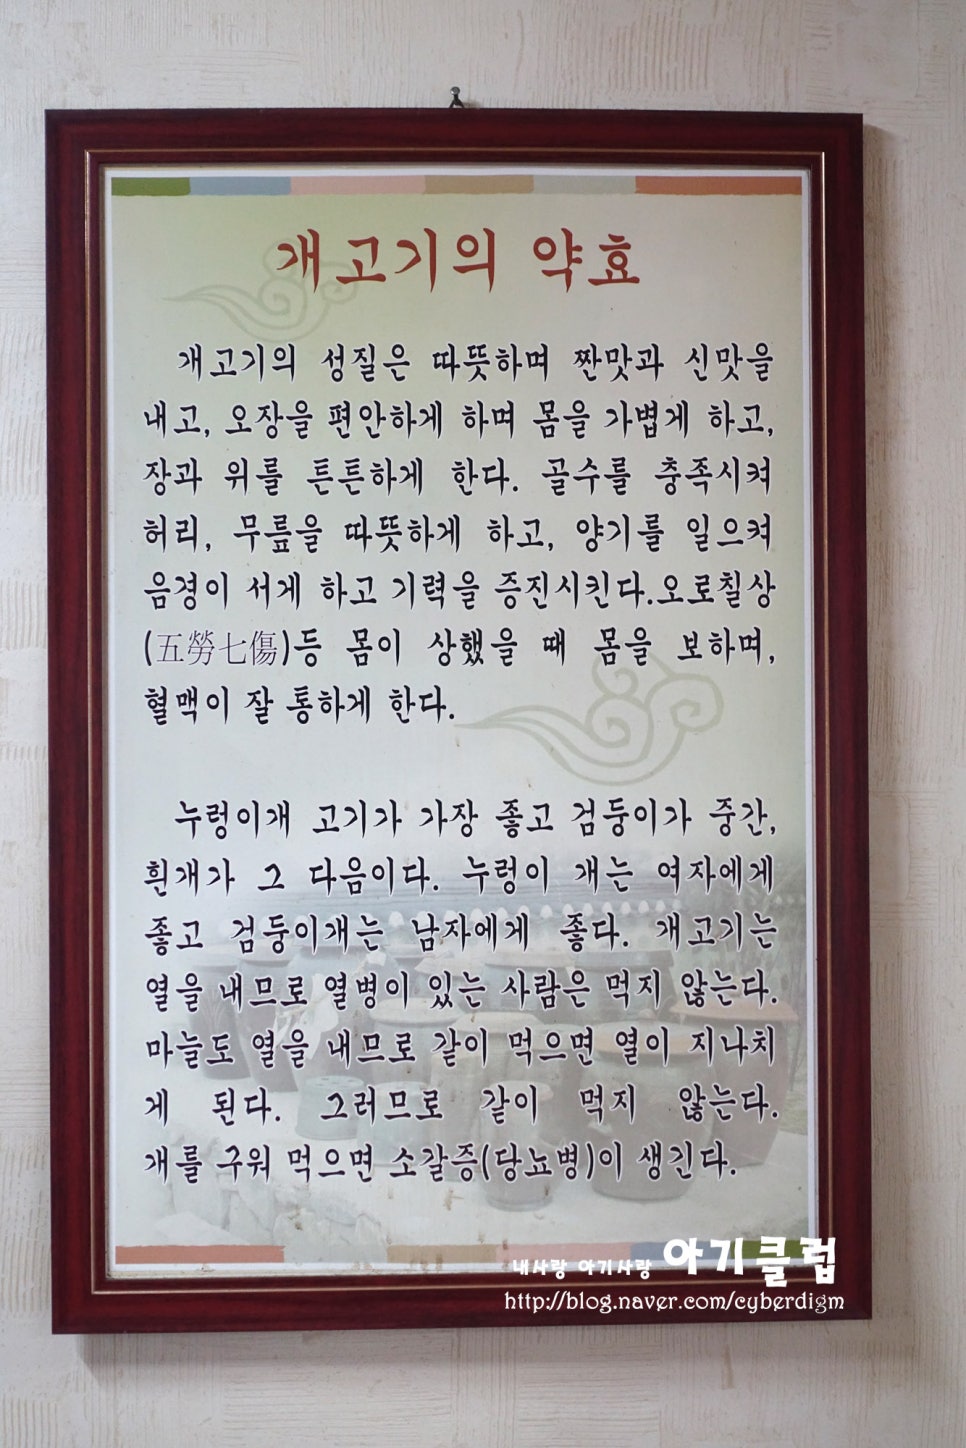 개고기의 약효
개고기의 성질은 따뜻하며 짠맛과 신맛을
내고, 오장을 편안하게 하며 몸을 가볍게 하고,
장과 위를 튼튼하게 한다. 골수를 충족시켜
허리, 무릎을 따뜻하게 하고, 양기를 일으켜
음경이 서게 하고 기력을 증진시킨다.오로칠상
(五勞七傷)등 몸이 상했을 때 몸을 보하며,
혈맥이 잘 통하게 한다.
누렁이개 고기가 가장 좋고 검둥이가 중간,
흰개가 그 다음이다. 누렁이 개는 여자에게
좋고 검둥이개는 남자에게 좋다. 개고기는
열을 내므로 열병이 있는 사람은 먹지 않는다.
마늘도 열을 내므로 같이 먹으면 열이 지나치
게 된다. 그러므로 같이 먹지 않는다.
개를 구워 먹으면 소갈증(당뇨병)이 생긴다.
내사랑 아기사랑 아기클럽
http://blog.naver.com/cyberdigm